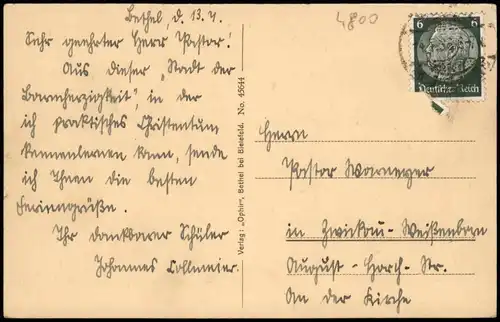 Bethel, d. 13. 7.
Sehr geehrter Herr Pastor!
Aus dieser „Stadt der
Barmherzigkeit", in der
ich praktisches Christentum
kennenlernen kann, sende
ich Ihnen die besten
Feriengrüße.
Ihr dankbarer Schüler
Johannes Collmeier.
Verlag: „Ophir", Bethel bei Bielefeld. No. 45644
4800
6 6
Deutsches Reich
Herrn
Pastor
in Zwickau-Weißenborn
August-Horch-Str.
An der Kirche